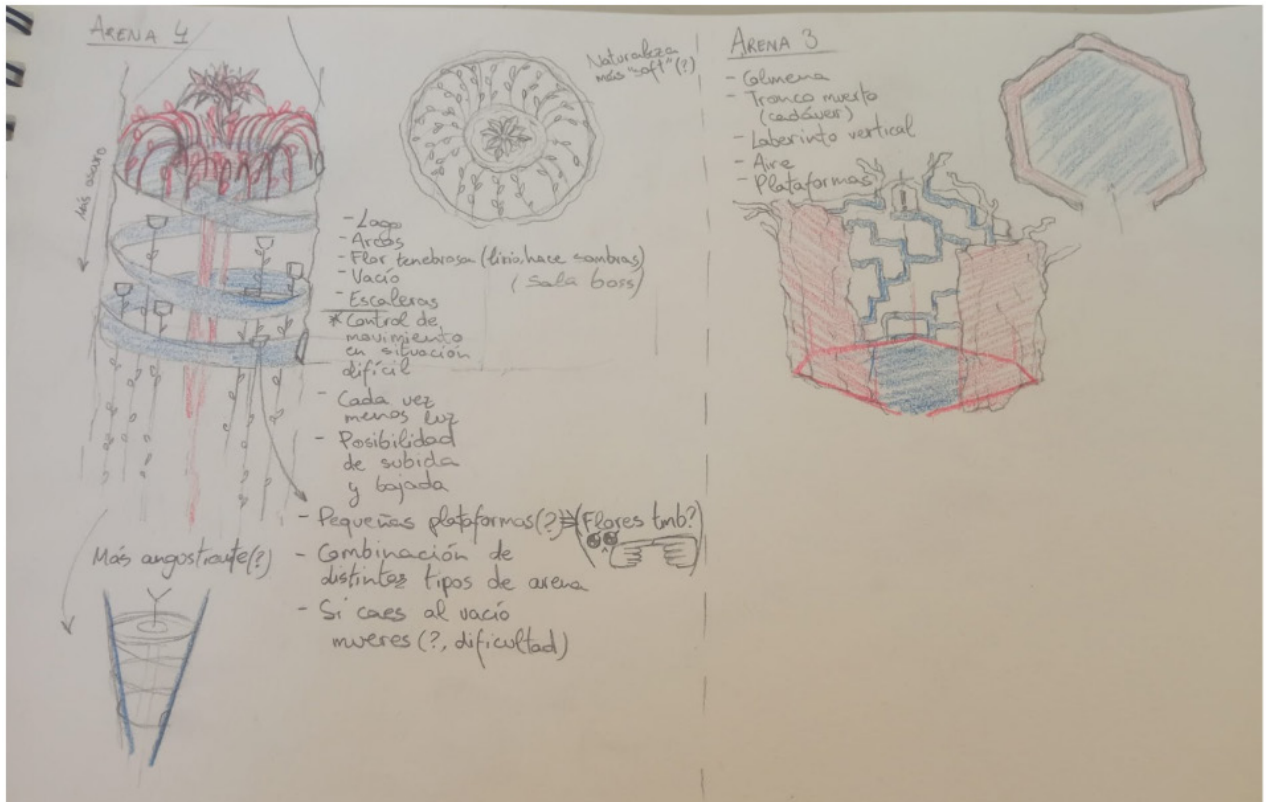 ARENA 4
Más abajo
Naturaleza
más "soft" (?)
- Lago
- Arcos
- Flor tenebrosa (lirio, hace sombras)
- Vacío
(Sala boss)
- Escaleras
* Control de
movimiento
en situación
difícil
- Cada vez
menos luz
- Posibilidad
de subida
y bajada
- Pequeñas plataformas(?) (Flores tmb?)
- Combinación de
distintos tipos de arena
- Si caes al vacío
mueres (?, dificultad)
Más angostante(?)
ARENA 3
- Colmena
- Tronco muerto
(cadáver)
- Laberinto vertical
- Aire
- Plataformas